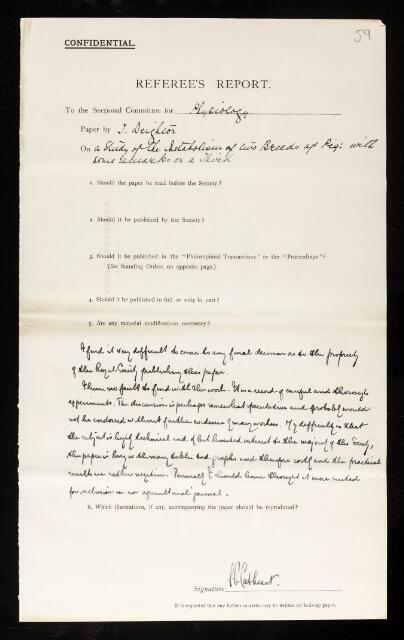 59
CONFIDENTIAL.
REFEREE'S REPORT.
To the Sectional Committee for Physiology
Paper by T. Deighton
On a Study of the Metabolism of two Breeds of Pig: with
some remarks on a Third
1. Should the paper be read before the Society?
2. Should it be published by the Society?
3. Should it be published in the "Philosophical Transactions" or the "Proceedings"?
(See Standing Orders on opposite page.)
4. Should it be published in full or only in part?
5. Are any material modifications necessary?
I find it very difficult to come to any final decision as to the propriety
of the Royal Society publishing this paper.
I have no fault to find with the work. It is a record of careful and thorough
experiments. The discussion is perhaps somewhat speculative and probably would
not be endorsed without further evidence by many workers. My difficulty is that
the subject is highly technical and of but limited interest to the majority of the Society,
the paper is long with many tables and graphs and therefore costly and the practical
results are rather negative. Personally I should have thought it more suited
for inclusion in an agricultural journal.
6. Which illustrations, if any, accompanying the paper should be reproduced?
Signature E P Cathcart.
It is requested that any further remarks may be written on foolscap paper.